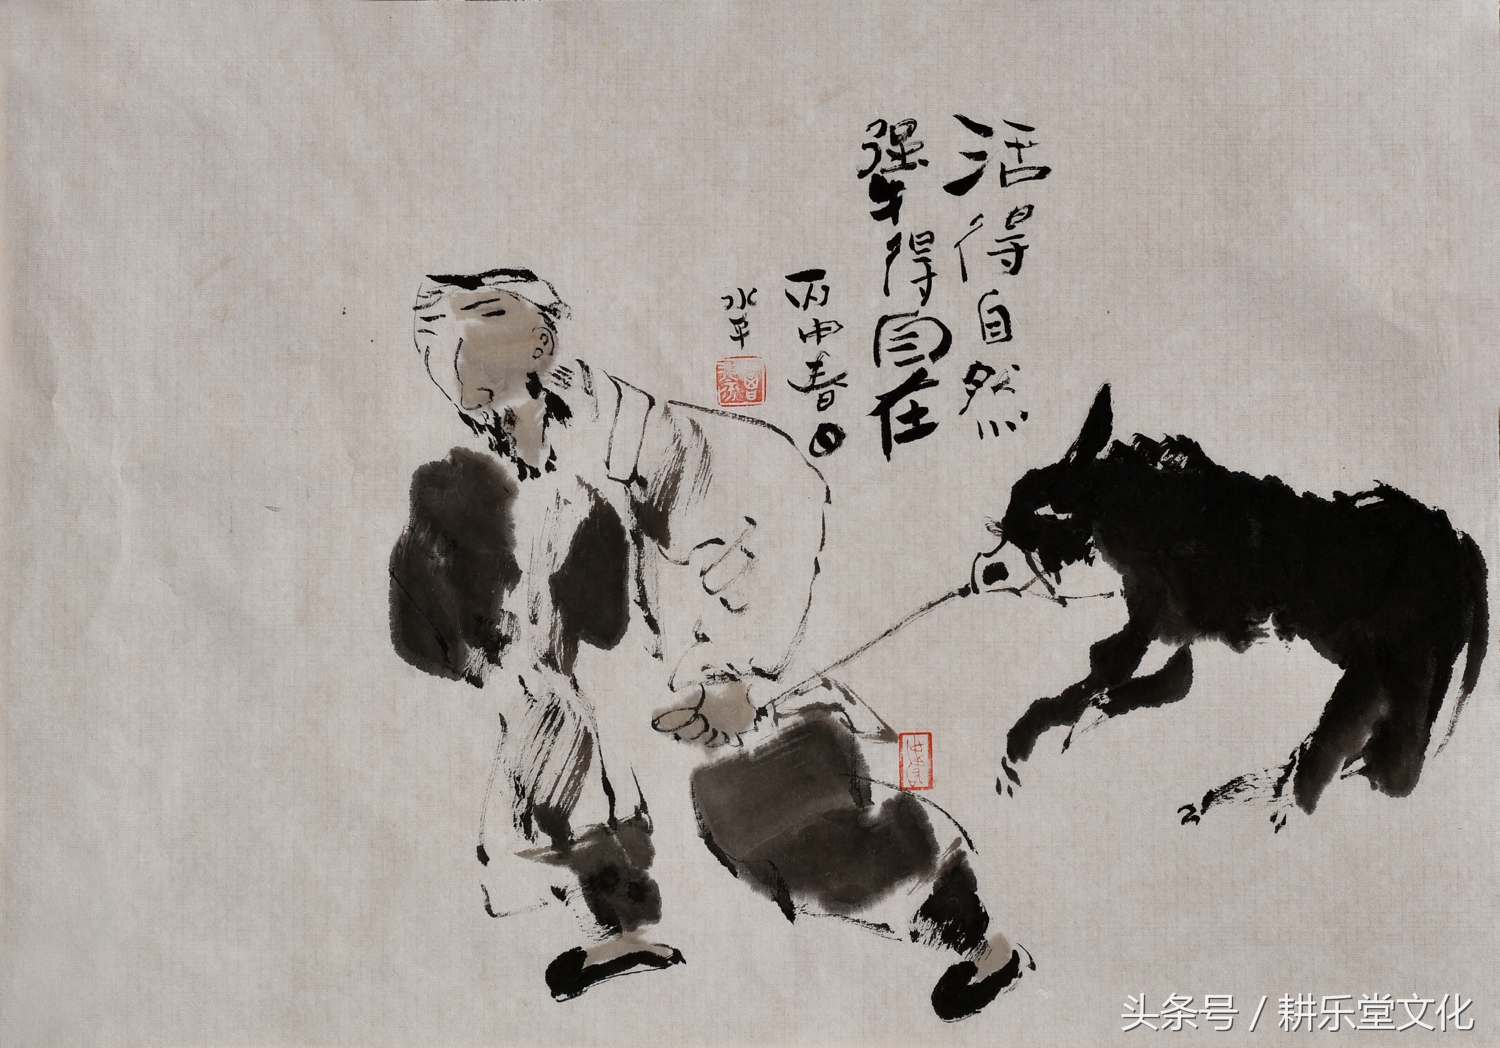 活得自然
犟得自在
丙申春日
水平
头条号 / 耕乐堂文化